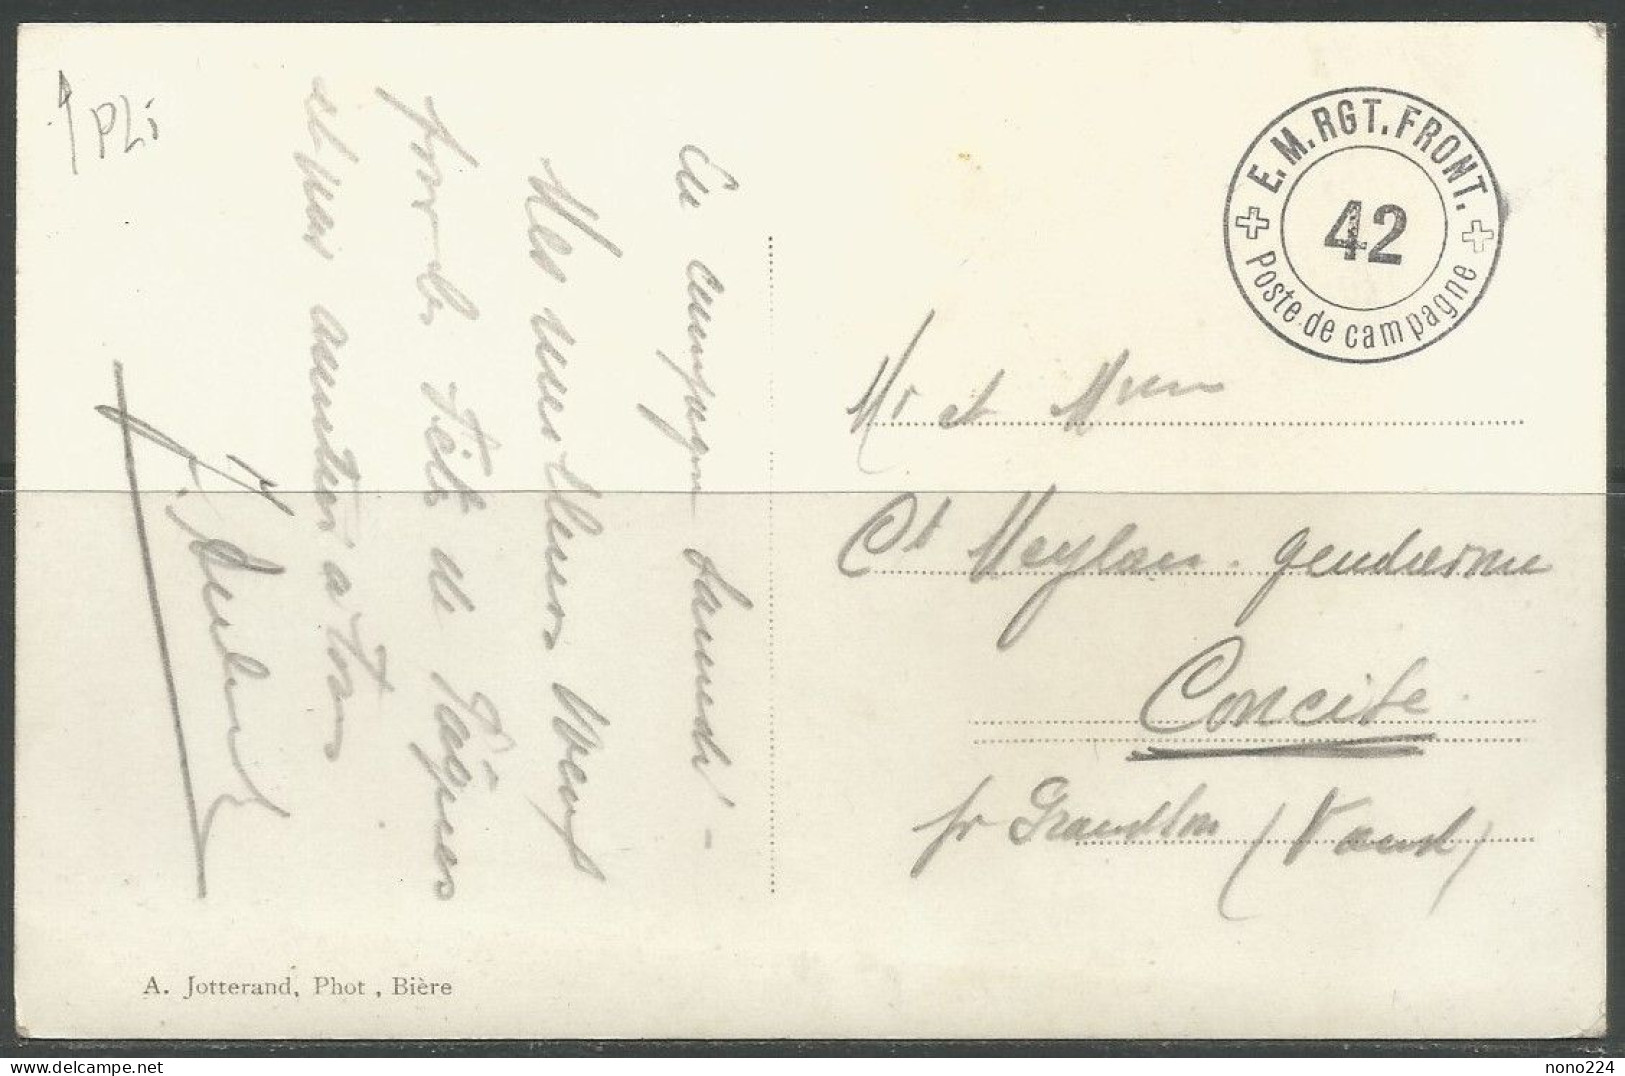 1 Pli
En campagne Samedi -
Mes meilleurs voeux
pour la Fête de Pâques
et mes amitiés à tous
E. M. RGT. FRONT.
42
Poste de campagne
Mr et Mme
Ct Meylan - gendarme
Concise.
pr Grandson (Vaud)
A. Jotterand, Phot , Bière
delcampe.net
nono224